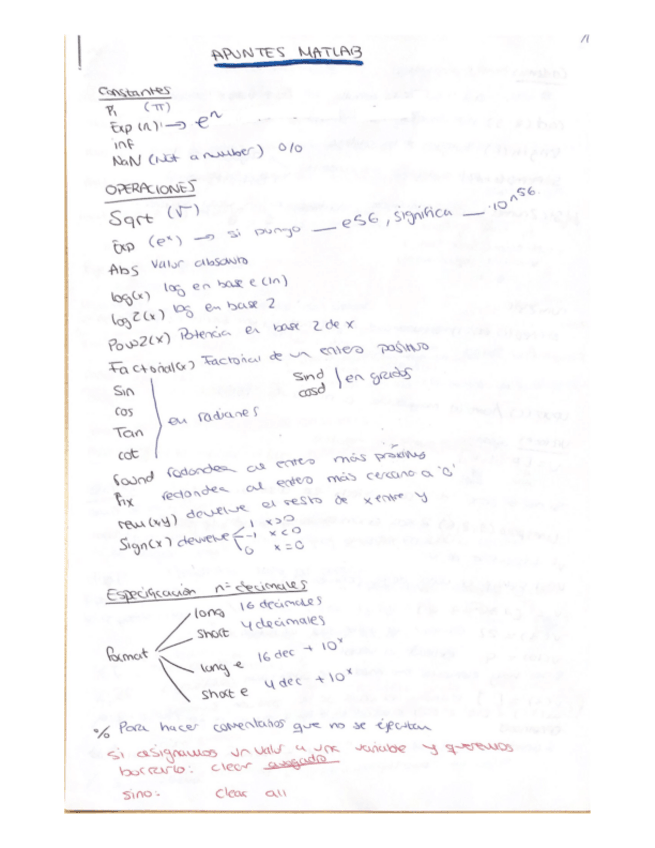 APUNTES MATLAB
Constantes
Pi (π)
Exp(n) → eⁿ
inf
NaN (Not a number) 0/0
OPERACIONES
Sqrt (√)
Exp (eˣ) → si pongo __ e56, significa __ ·10^56
Abs Valor absoluto
log(x) log en base e (ln)
log2(x) log en base 2
Pow2(x) Potencia en base 2 de x
Factorial(x) Factorial de un entero positivo
Sin
cos
Tan
cot
en radianes
Sind
cosd
en grados
round redondea al entero más próximo
fix redondea al entero más cercano a '0'
rem(x,y) devuelve el resto de x entre y
Sign(x) devuelve
1 x>0
-1 x<0
0 x=0
Especificación nº decimales
Format
long 16 decimales
short 4 decimales
long e 16 dec + 10ˣ
short e 4 dec + 10ˣ
% Para hacer comentarios que no se ejecutan
Si asignamos un valor a una variable y queremos
borrarlo: clear asignado
sino: Clear all